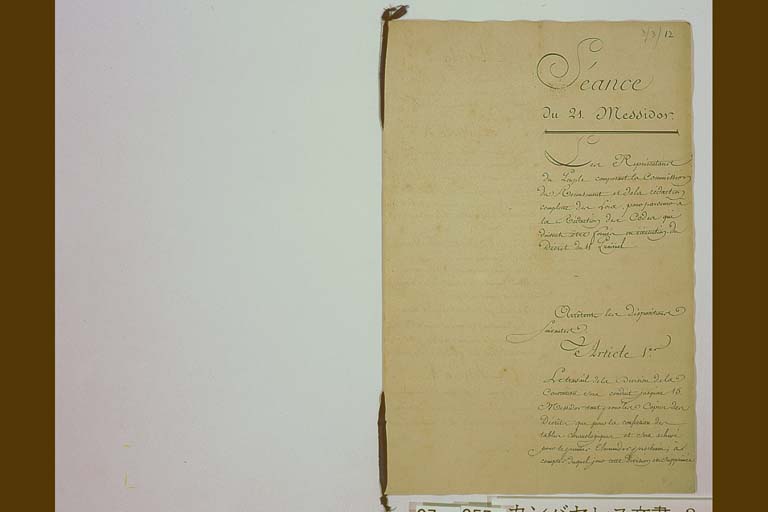 3/3/12
Séance
du 21. Messidor.
Les Représentans
du Peuple composant la Commission
du Recensement et de la rédaction
complette des Loix, pour parvenir à
la rédaction des Codes qui
doivent être formés en exécution du
Décret du 11 Prairial
Arrêtent les dispositions
suivantes
Article 1er
Le travail de la Division de la
Convention sera conduit jusqu'au 15.
Messidor tant pour les Copies des
Décrets que pour la confection des
tables chronologiques et sera achevé
pour le premier Thermidor prochain, à
compter duquel jour cette Division est supprimée